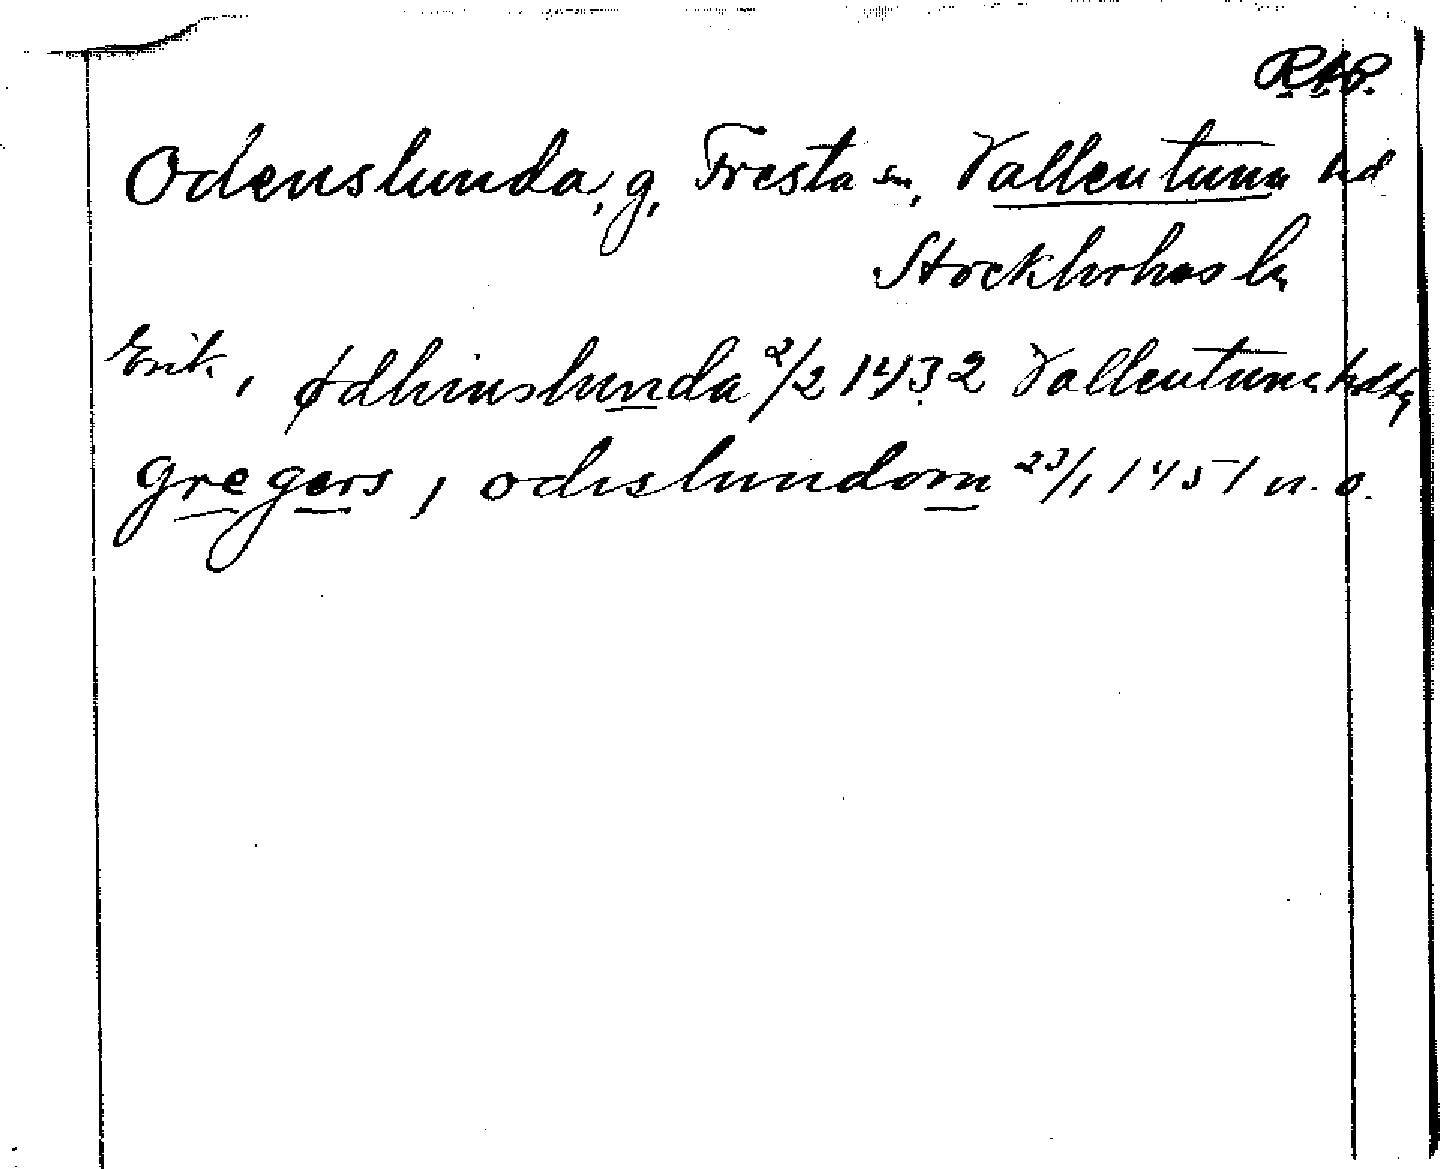 R.A.P.
Odenslunda, g, Fresta sn, Vallentuna hd
Stockholms ln
Erik, ødhinslunda 2/2 1432 Vallentuna hdtg
gregers, odislundom 23/1 1451 n. o.